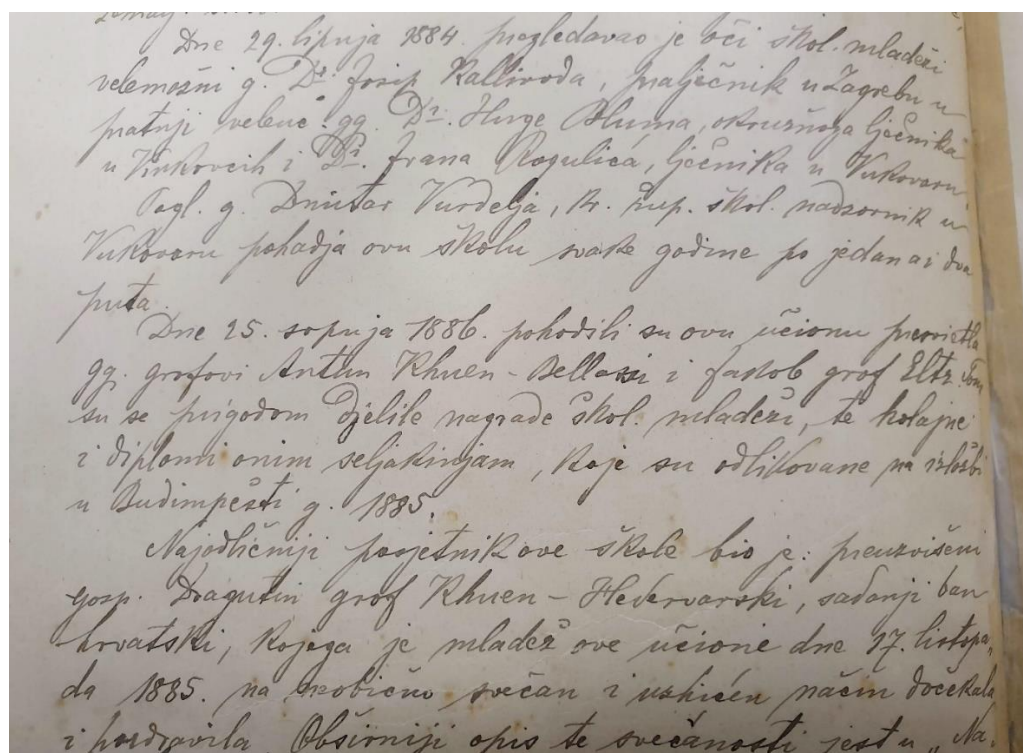 Dne 29. lipnja 1884. pregledavao je oči škol. mladeži
velemožni g. Dr. Josip Kallivoda, praliječnik u Zagrebu u
pratnji velenc. gg. Dr. Huge Bluma, okružnoga liječnika
u Vinkovcih i Dr. Ivana Rogulića, liječnika u Vukovaru.
Pogl. g. Dmitar Vurdelja, kr. žup. škol. nadzornik u
Vukovaru pohadja ovu školu svake godine po jedan a i dva
puta.
Dne 25. srpnja 1886. pohodili su ovu učionu presvietla
gg. grofovi Antun Khuen-Bellassi i Jakob grof Eltz. Tom
su se prigodom djelile nagrade škol. mladeži, te kolajne
i diplomi onim seljakinjam, koje su odlikovane na izložbi
u Budimpešti g. 1885.
Najodličniji posjetnik ove škole bio je: preuzvišeni
gosp. Dragutin grof Khuen-Hedervarski, sadanji ban
hrvatski, kojega je mladež ove učione dne 17. listopa-
da 1885. na neobično svečan i ushićen način dočekala
i pozdravila. Obširniji opis te svečanosti jest u "Na-